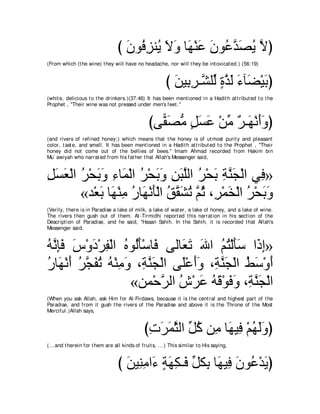 (لَّا يُصَدَّعُونَ عَنْهَا وَلَا يُنزِفُونَ )
(From which (the wine) they will have no headache, nor will they be intoxicated.) (56:19)
(بَيْضَآءَ لَذَّةٍ لِّلشَّـرِبِينَ )
(white, delicious to the drinkers.)(37:46) It has been mentioned in a Hadith attributed to the
Prophet , "Their wine was not pressed under men's feet.''
(وَأَنْهَـرٌ مِّنْ عَسَلٍ مُّصَفًّى)
(and rivers of refined honey;) which means that the honey is of utmost purity and pleasant
color, taste, and smell. It has been mentioned in a Hadith attributed to the Prophet , "Their
honey did not come out of the bellies of bees.'' Imam Ahmad recorded from Hakim bin
Mu`awiyah who narrated from his father that Allah's Messenger said,
«فِي الْجَنَّةِ بَحْرُ اللَّبَنِ وَبَحْرُ الْمَاءِ وَبَحْرُ الْعَسَلِ
وَبَحْرُ الْخَمْرِ، ثُمَّ تُشَقَّقُ الْأَنْهَارُ مِنْهَا بَعْد»
(Verily, there is in Paradise a lake of milk, a lake of water, a lake of honey, and a lake of wine.
The rivers then gush out of them. At-Tirmidhi reported this narration in his section of the
Description of Paradise, and he said, "Hasan Sahih. In the Sahih, it is recorded that Allah's
Messenger said,
«إِذَا سَأَلْتُمُ اللهَ تَعَالَى فَاسْأَلُوهُ الْفِرْدَوْسَ فَإِنَّهُ
أَوْسَطُ الْجَنَّةِ، وَأَعْلَى الْجَنَّةِ، وَمِنْهُ تُفَجَّرُ أَنْهَارُ
الْجَنَّةِ، وَفَوْقَهُ عَرْشُ الرَّحْمن»
(When you ask Allah, ask Him for Al-Firdaws, because it is the central and highest part of the
Paradise, and from it gush the rivers of the Paradise and above it is the Throne of the Most
Merciful.)Allah says,
(وَلَهُمْ فِيهَا مِن كُلِّ الثَّمَرَتِ)
(...and therein for them are all kinds of fruits, ...) This similar to His saying,
(يَدْعُونَ فِيهَا بِكلِّ فَـكِهَةٍ ءَامِنِينَ )